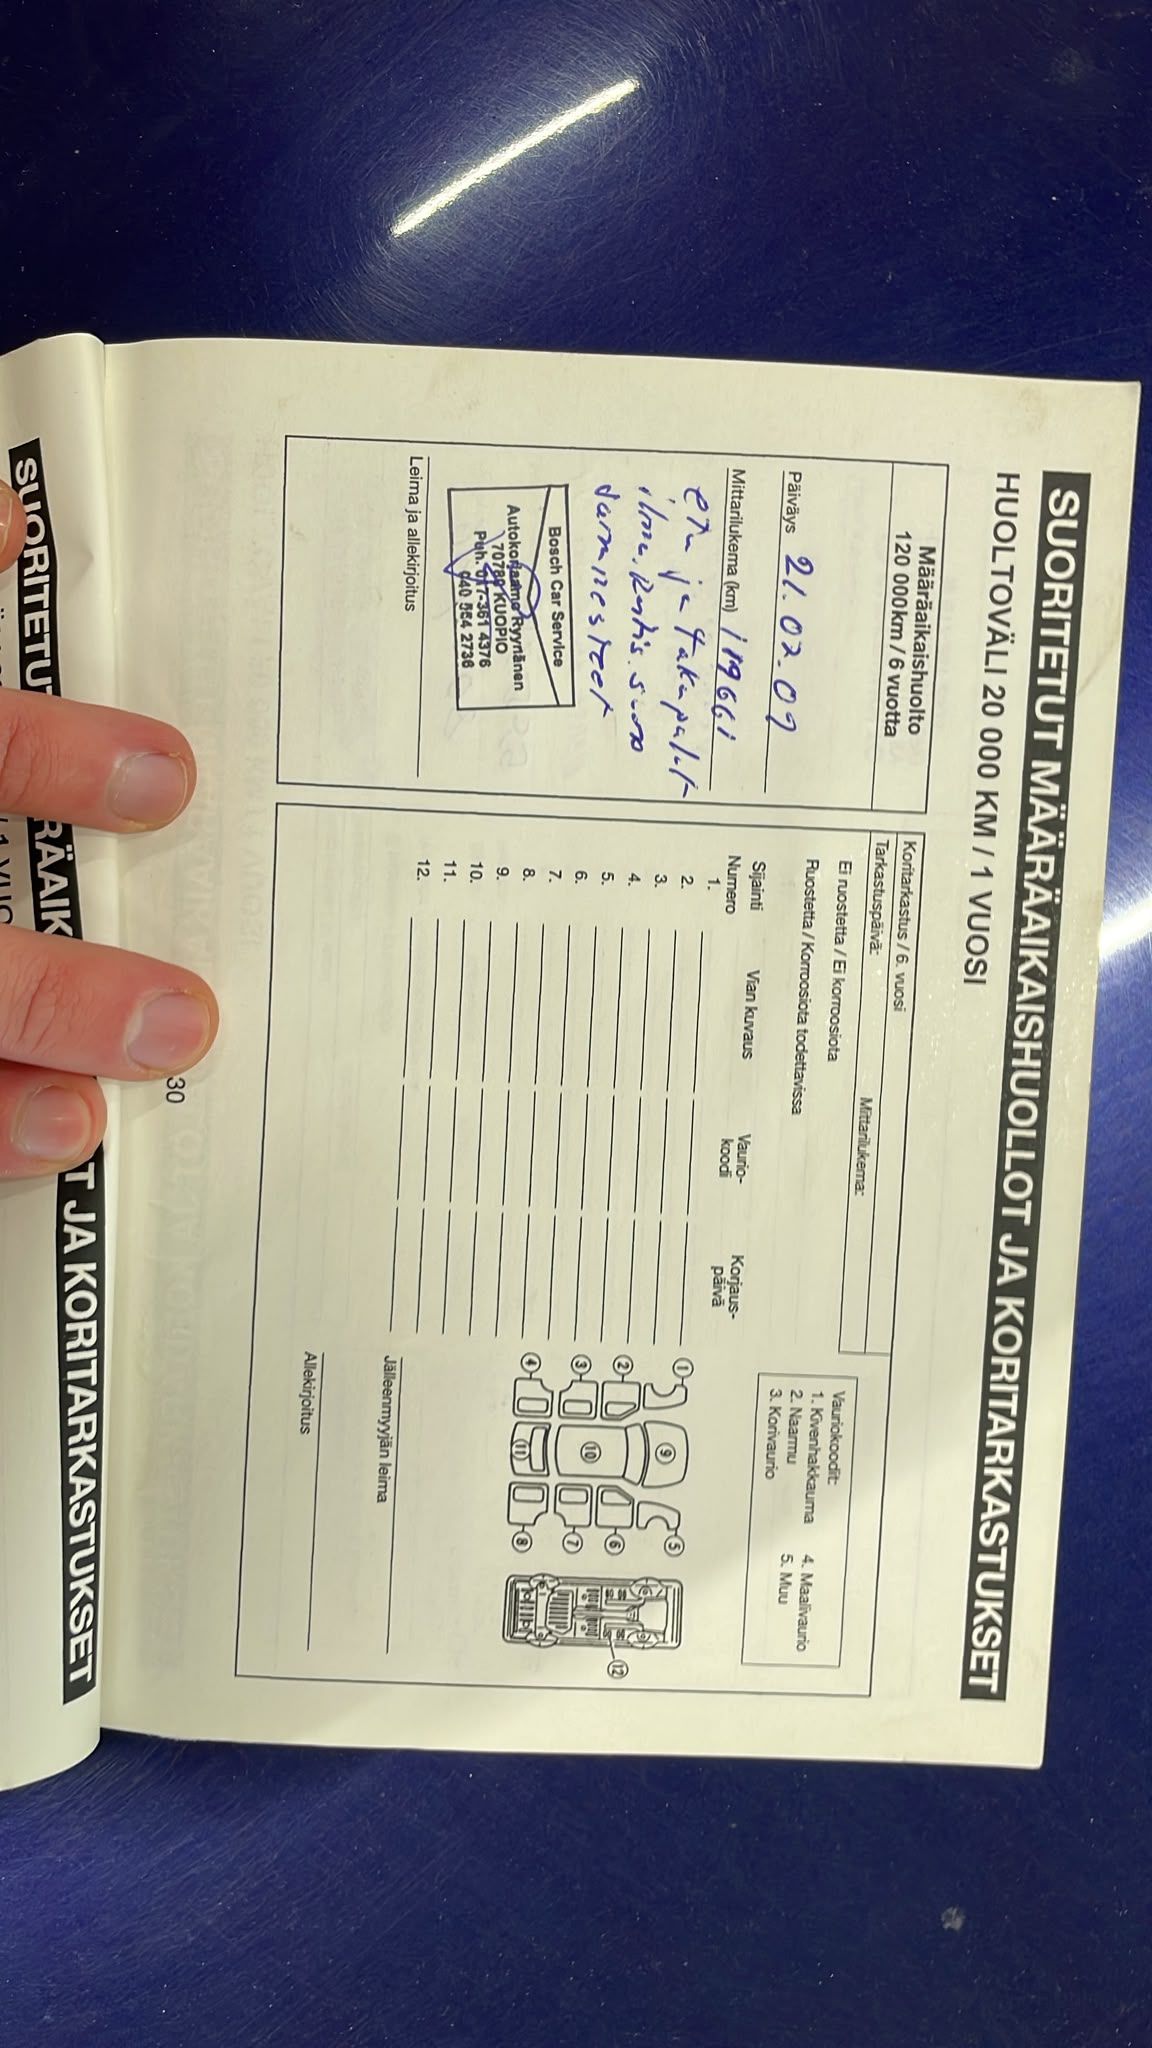 SUORITETUT MÄÄRÄAIKAISHUOLLOT JA KORITARKASTUKSET
HUOLTOVÄLI 20 000 KM / 1 VUOSI
Määräaikaishuolto
120 000km / 6 vuotta
Päiväys 21.02.09
Mittarilukema (km) 119661
etu ja takapalat
ilma.
Bosch Car Service
Autokorjaamo Ryynänen
70780 KUOPIO
Puh. 017-361 4376
040 564 2736
Leima ja allekirjoitus
Koritarkastus / 6. vuosi
Tarkastuspäivä:
Mittarilukema:
Ei ruostetta / Ei korroosiota
Ruostetta / Korroosiota todettavissa
Vauriokoodit:
1. Kivenhakkauma
2. Naarmu
3. Korivaurio
4. Maalivaurio
5. Muu
Sijainti
Numero
Vian kuvaus
Vaurio-
koodi
Korjaus-
päivä
1.
2.
3.
4.
5.
6.
7.
8.
9.
10.
11.
12.
1
2
3
4
9
10
11
5
6
7
8
12
Jälleenmyyjän leima
Allekirjoitus
30
T JA KORITARKASTUKSET